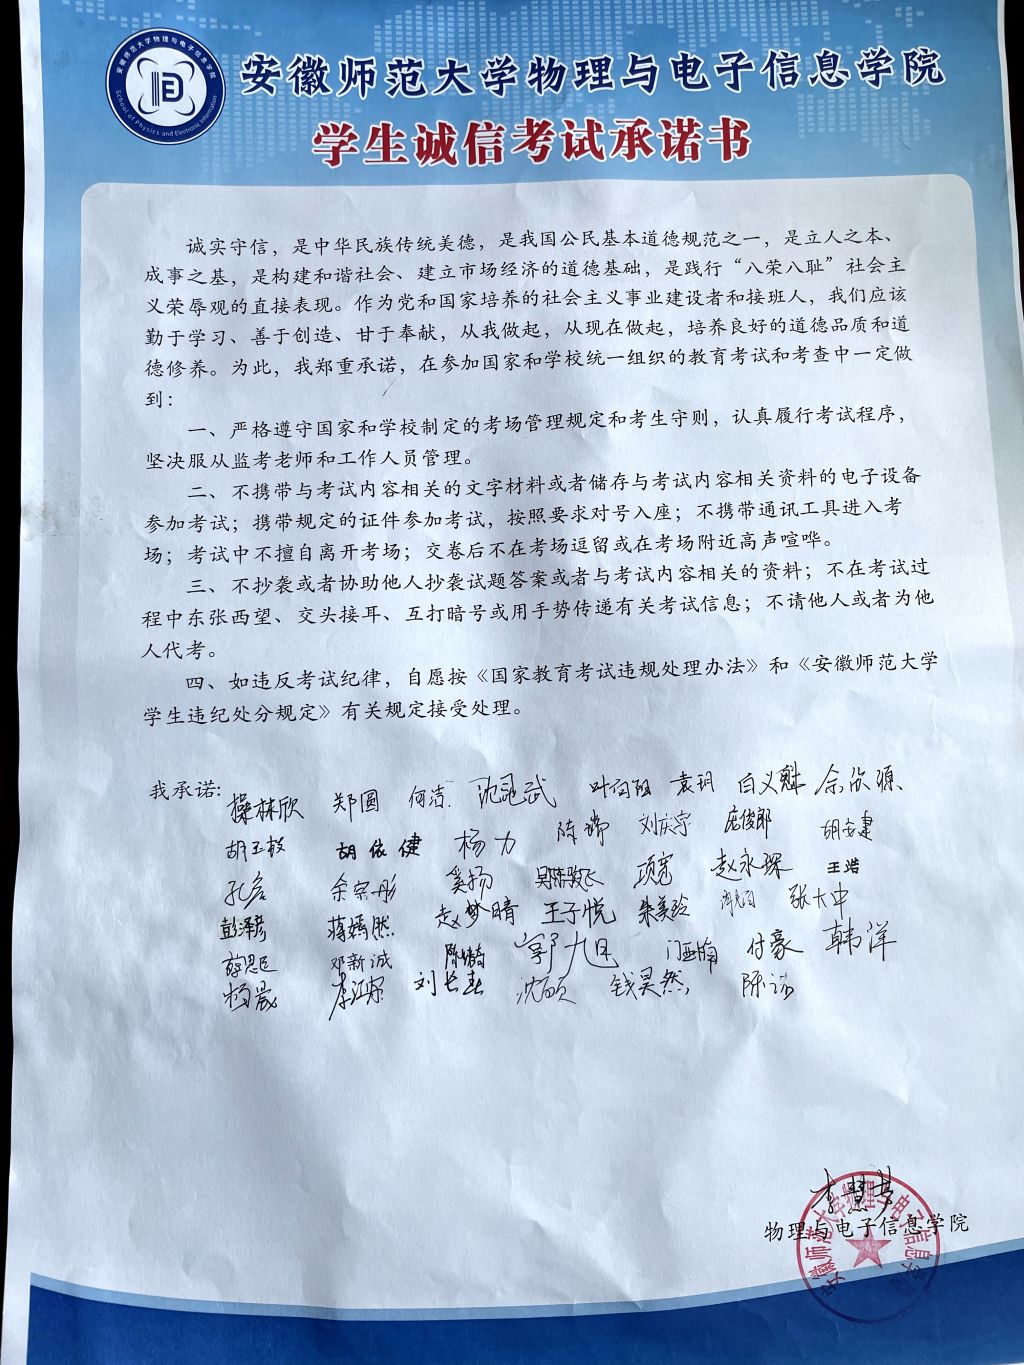 安徽师范大学物理与电子信息学院
School of Physics and Electronic Information
安徽师范大学物理与电子信息学院
学生诚信考试承诺书
诚实守信，是中华民族传统美德，是我国公民基本道德规范之一，是立人之本、
成事之基，是构建和谐社会、建立市场经济的道德基础，是践行“八荣八耻”社会主
义荣辱观的直接表现。作为党和国家培养的社会主义事业建设者和接班人，我们应该
勤于学习、善于创造、甘于奉献，从我做起，从现在做起，培养良好的道德品质和道
德修养。为此，我郑重承诺，在参加国家和学校统一组织的教育考试和考查中一定做
到：
一、严格遵守国家和学校制定的考场管理规定和考生守则，认真履行考试程序，
坚决服从监考老师和工作人员管理。
二、不携带与考试内容相关的文字材料或者储存与考试内容相关资料的电子设备
参加考试；携带规定的证件参加考试，按照要求对号入座；不携带通讯工具进入考
场；考试中不擅自离开考场；交卷后不在考场逗留或在考场附近高声喧哗。
三、不抄袭或者协助他人抄袭试题答案或者与考试内容相关的资料；不在考试过
程中东张西望、交头接耳、互打暗号或用手势传递有关考试信息；不请他人或者为他
人代考。
四、如违反考试纪律，自愿按《国家教育考试违规处理办法》和《安徽师范大学
学生违纪处分规定》有关规定接受处理。
我承诺: 操林欣 郑圆 何洁 沈冠武 袁玥 白义魁 余欣源
胡玉枝 胡依健 杨力 陈瑞 刘庆宇 庞俊郎 胡安建
孔名 余宗彤 奚扬 吴陈骏飞 项宽 赵永琛 王浩
彭泽彦 蒋嫣然 赵梦晴 王子悦 朱美玲 张大中
薛思臣 邓新诚 郭九旭 付豪 韩洋
杨晨 李江宗 刘长春 沈欧 钱昊然 陈诺
李慧梦
物理与电子信息学院
安徽师范大学物理与电子信息学院